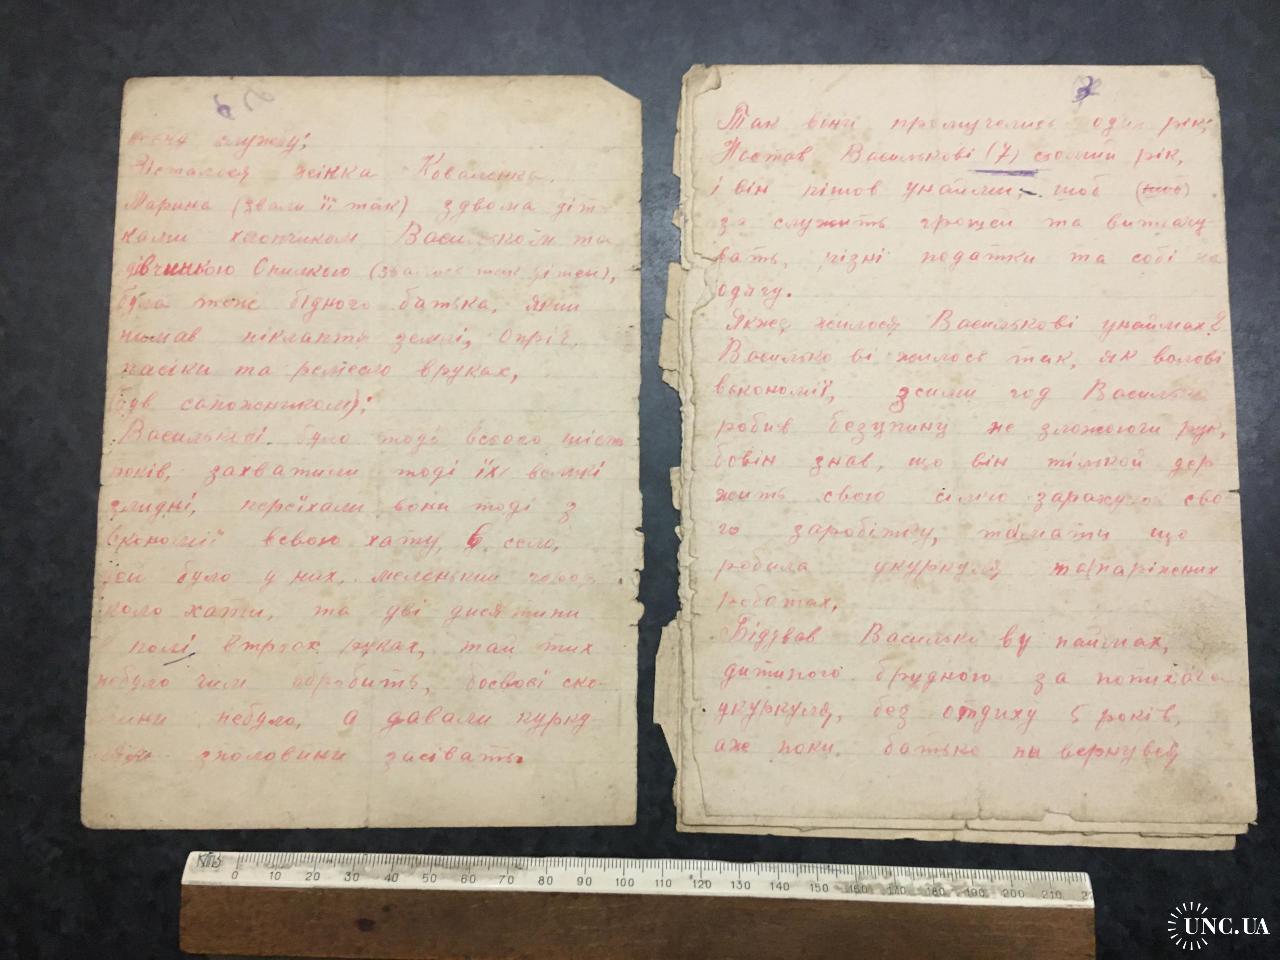 службу;
Зісталася жінка Коваленка.
Марина (звали її так) здвома діт-
ками хлопчиком Васильком та
дівчинкою Онилкою (звалося так дітей),
була тож бідного батька, який
немав ніклаптя землі, Опріч
пасіки та ремесла вруках,
був сапожником);
Василькові було тоді всього шість
років, захватили тоді їх великі
злидні, переїхали вони тоді з
Економії всвою хату, в село,
було у них, маленький город
коло хати, та дві дисятини
полі втрьох руках, тай тих
небуло чим обробить, боєвої ско-
тини небуло, а давали курку-
зполовини засівать
Так вони промучились один рік,
Настав Василькові (7) сьомий рік,
і він пішов унайми, щоб (щоб)
за служить грошей та виплачу-
вать, різні податки та собі на
одягу.
Якже жилося Василькові унаймах?
Василькові жилося так, як волові
векономії, зсими год Василько
робив безупину не зложаючи рук,
бовін знав, що він тілкой дер
жить свою сімю заражуно сво-
го заробітку, тамати що
робила укуркуля, та(наріжених
роботах,
Бідував Василько ву наймах,
дитиного брудною за попихача
укуркуля, без отдиху 5 років,
аже поки батько повернувся
0 10 20 30 40 50 60 70 80 90 100 110 120 130 140 150 160 170 180 190 200 210
UNC.UA